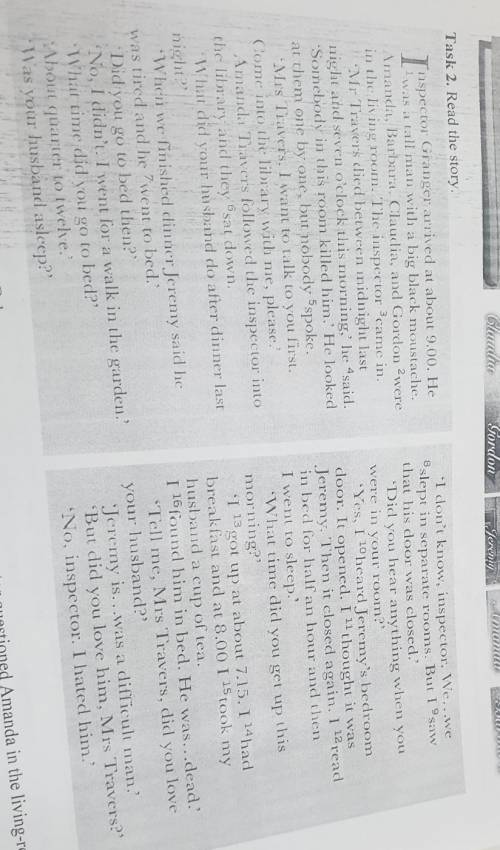 Claudia
Gordon
Jeremy
Task 2. Read the story.
Inspector Granger arrived at about 9.00. He
¹was a tall man with a big black moustache.
Amanda, Barbara, Claudia, and Gordon ²were
in the living room. The inspector ³came in.
‘Mr Travers died between midnight last
night and seven o'clock this morning,’ he ⁴said.
‘Somebody in this room killed him.’ He looked
at them one by one, but nobody ⁵spoke.
‘Mrs Travers, I want to talk to you first.
Come into the library with me, please.’
Amanda Travers followed the inspector into
the library and they ⁶sat down.
‘What did your husband do after dinner last
night?’
‘When we finished dinner Jeremy said he
was tired and he ⁷went to bed.’
‘Did you go to bed then?’
‘No, I didn't. I went for a walk in the garden.’
‘What time did you go to bed?’
‘About quarter to twelve.’
‘Was your husband asleep?’
‘I don't know, inspector. We...we
⁸slept in separate rooms. But I ⁹saw
that his door was closed.’
‘Did you hear anything when you
were in your room?’
‘Yes, I ¹⁰heard Jeremy's bedroom
door. It opened. I ¹¹thought it was
Jeremy. Then it closed again. I ¹²read
in bed for half an hour and then
I went to sleep.’
‘What time did you get up this
morning?’
‘I ¹³got up at about 7.15. I ¹⁴had
breakfast and at 8.00 I ¹⁵took my
husband a cup of tea.
I ¹⁶found him in bed. He was...dead.’
‘Tell me, Mrs Travers, did you love
your husband?’
‘Jeremy is...was a difficult man.’
‘But did you love him, Mrs Travers?’
‘No, inspector. I hated him.’
questioned Amanda in the living-